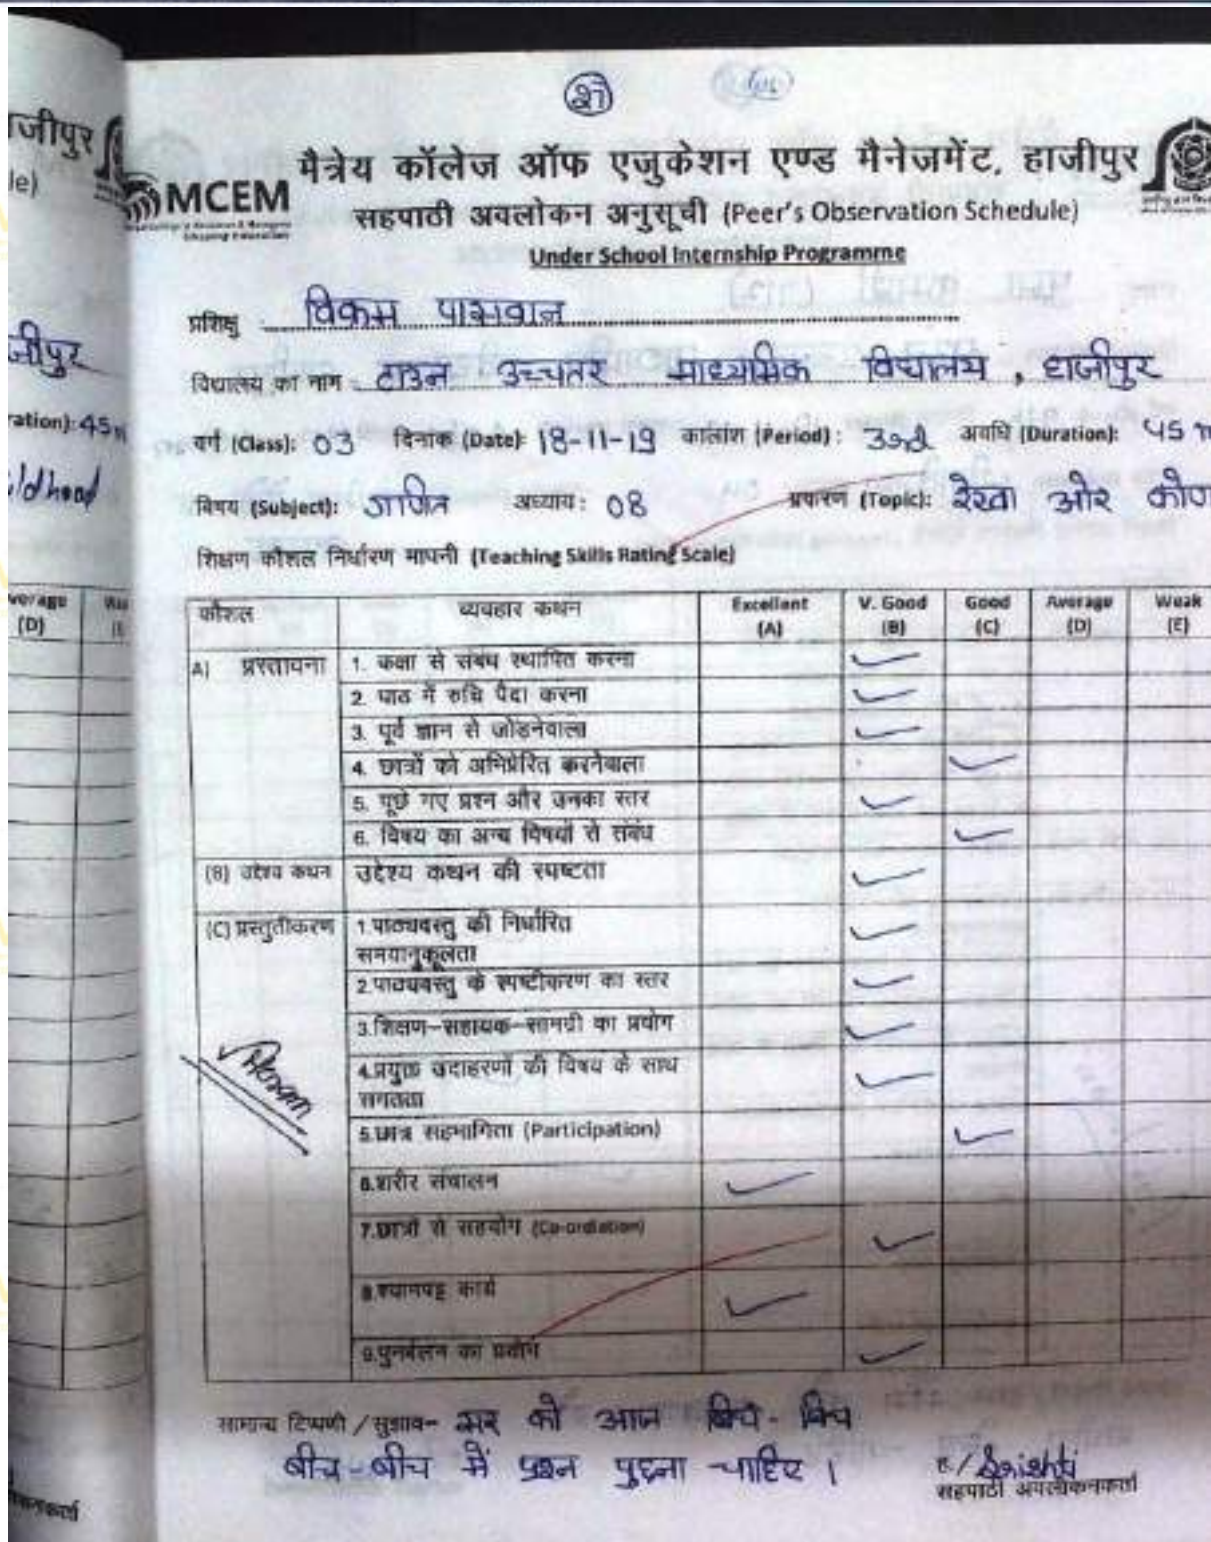 जीपुर
le)
जीपुर
ration): 45 m
ldhood
verage
(D)
मैत्रेय कॉलेज ऑफ एजुकेशन एण्ड मैनेजमेंट, हाजीपुर
MCEM
सहपाठी अवलोकन अनुसूची (Peer's Observation Schedule)
Under School Internship Programme
प्रशिक्षु विकास पासवान
विद्यालय का नाम टाउन उच्चतर माध्यमिक विद्यालय, हाजीपुर
वर्ग (Class): 03 दिनाक (Date): 18-11-19 कालांश (Period): 3rd अवधि (Duration): 45 m
विषय (Subject): गणित अध्याय: 08 प्रकरण (Topic): रेखा ओर कोण
शिक्षण कौशल निर्धारण मापनी (Teaching Skills Rating Scale)
कौशल व्यवहार कथन Excellent (A) V. Good (B) Good (C) Average (D) Weak (E)
A) प्रस्तावना 1. कक्षा से संबंध स्थापित करना ✓
2. पाठ में रुचि पैदा करना ✓
3. पूर्व ज्ञान से जोड़नेवाला ✓
4. छात्रों को अभिप्रेरित करनेवाला ✓
5. पूछे गए प्रश्न और उनका स्तर ✓
6. विषय का अन्य विषयों से संबंध ✓
(B) उद्देश्य कथन उद्देश्य कथन की स्पष्टता ✓
(C) प्रस्तुतीकरण 1.पाठ्यवस्तु की निर्धारित
समयानुकूलता ✓
2.पाठ्यवस्तु के स्पष्टीकरण का स्तर ✓
3.शिक्षण-सहायक-सामग्री का प्रयोग ✓
4.प्रयुक्त उदाहरणों की विषय के साथ
संगतता ✓
5.छात्र सहभागिता (Participation) ✓
6.शरीर संचालन ✓
7.छात्रों से सहयोग (Co-ordiation) ✓
8.श्यामपट्ट कार्य ✓
9.पुनर्बलन का प्रयोग ✓
सामान्य टिप्पणी / सुझाव- सर को आज
बीच-बीच में प्रश्न पुछना चाहिए ।
ह./ Srishti
सहपाठी अवलोकनकर्ता